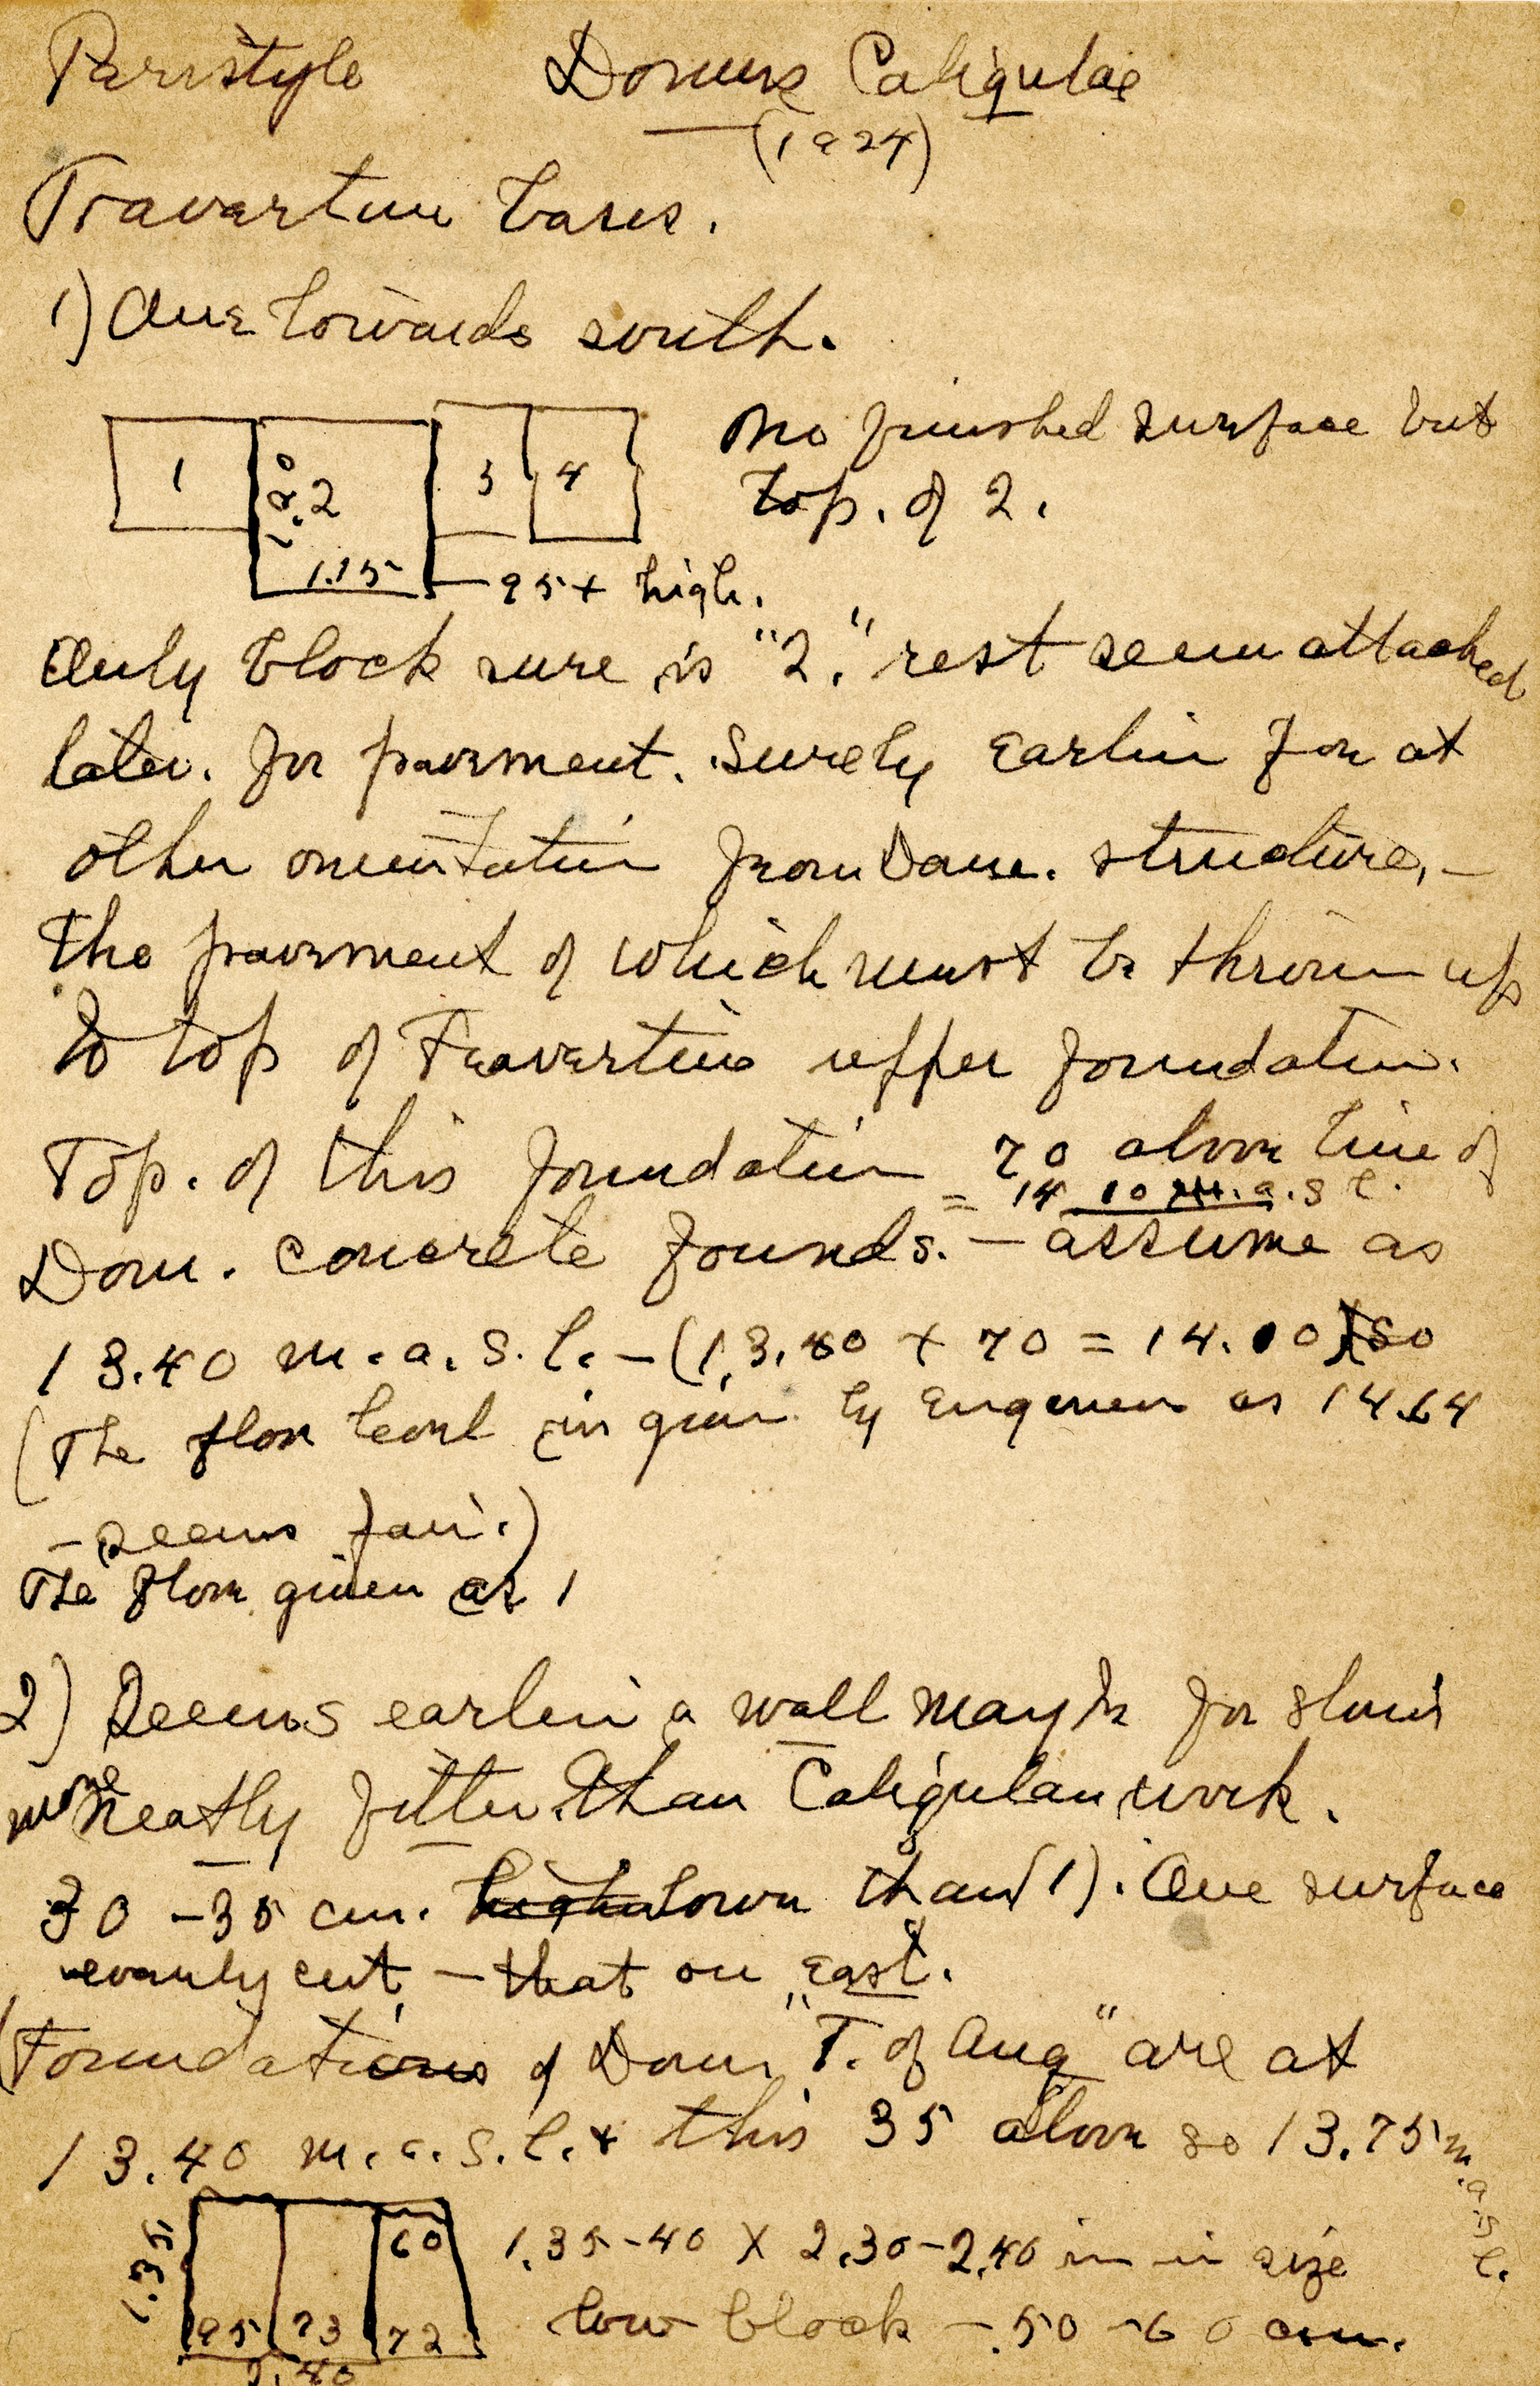 Peristyle Domus Caligulae
(1924)
Travertine bases.
1) One towards south.
1 1.20 2 3 4 no finished surface but
top. of 2.
1.15 95+ high.
Only block sure is "2." rest seem attached
later. for pavement. Surely earlier for at
other orientation from Dom. structure, -
the pavement of which must be thrown up
to top of Travertine upper foundation.
Top. of this foundation 70 above line of
= 14 10 m.a.s l.
Dom. concrete founds. - assume as
13.40 m.a.s.l. - (13.40 + 70 = 14.10) so
(The floor level is given by engineer as 14.64
- seems fair.)
The floor given as 1
2) Seems earlier a wall maybe for
more neatly fitted than Caligulan work.
30 - 35 cm. higher lower than (1). One surface
evenly cut - that on East.
(Foundations of Dom "T. of Aug" are at
13.40 m.a.s.l. + this 35 above so 13.75 m.a.s.l.
1.35 60 1.35-40 X 2.30-2.40 in size
95 73 72 low block - .50 - 60 cm.
2.40